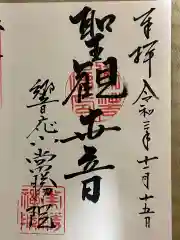 奉拝 令和三年十一月十五日
聖観世音
響應山 常勝院